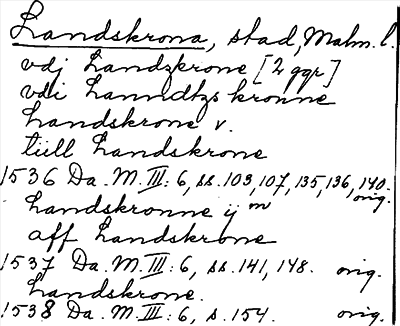 Landskrona, stad, Malm. l.
vdj Landzkrone [2 ggr]
vdi Lanndtzskronne
Landskrone v.
tüll Landskrone
1536 Da. M. III: 6, ss. 103, 107, 135, 136, 140. orig.
Landskronne ij m
aff Landskrone
1537 Da. M. III: 6, ss. 141, 148. orig.
Landskrone.
1538 Da. M. III: 6, s. 154. orig.